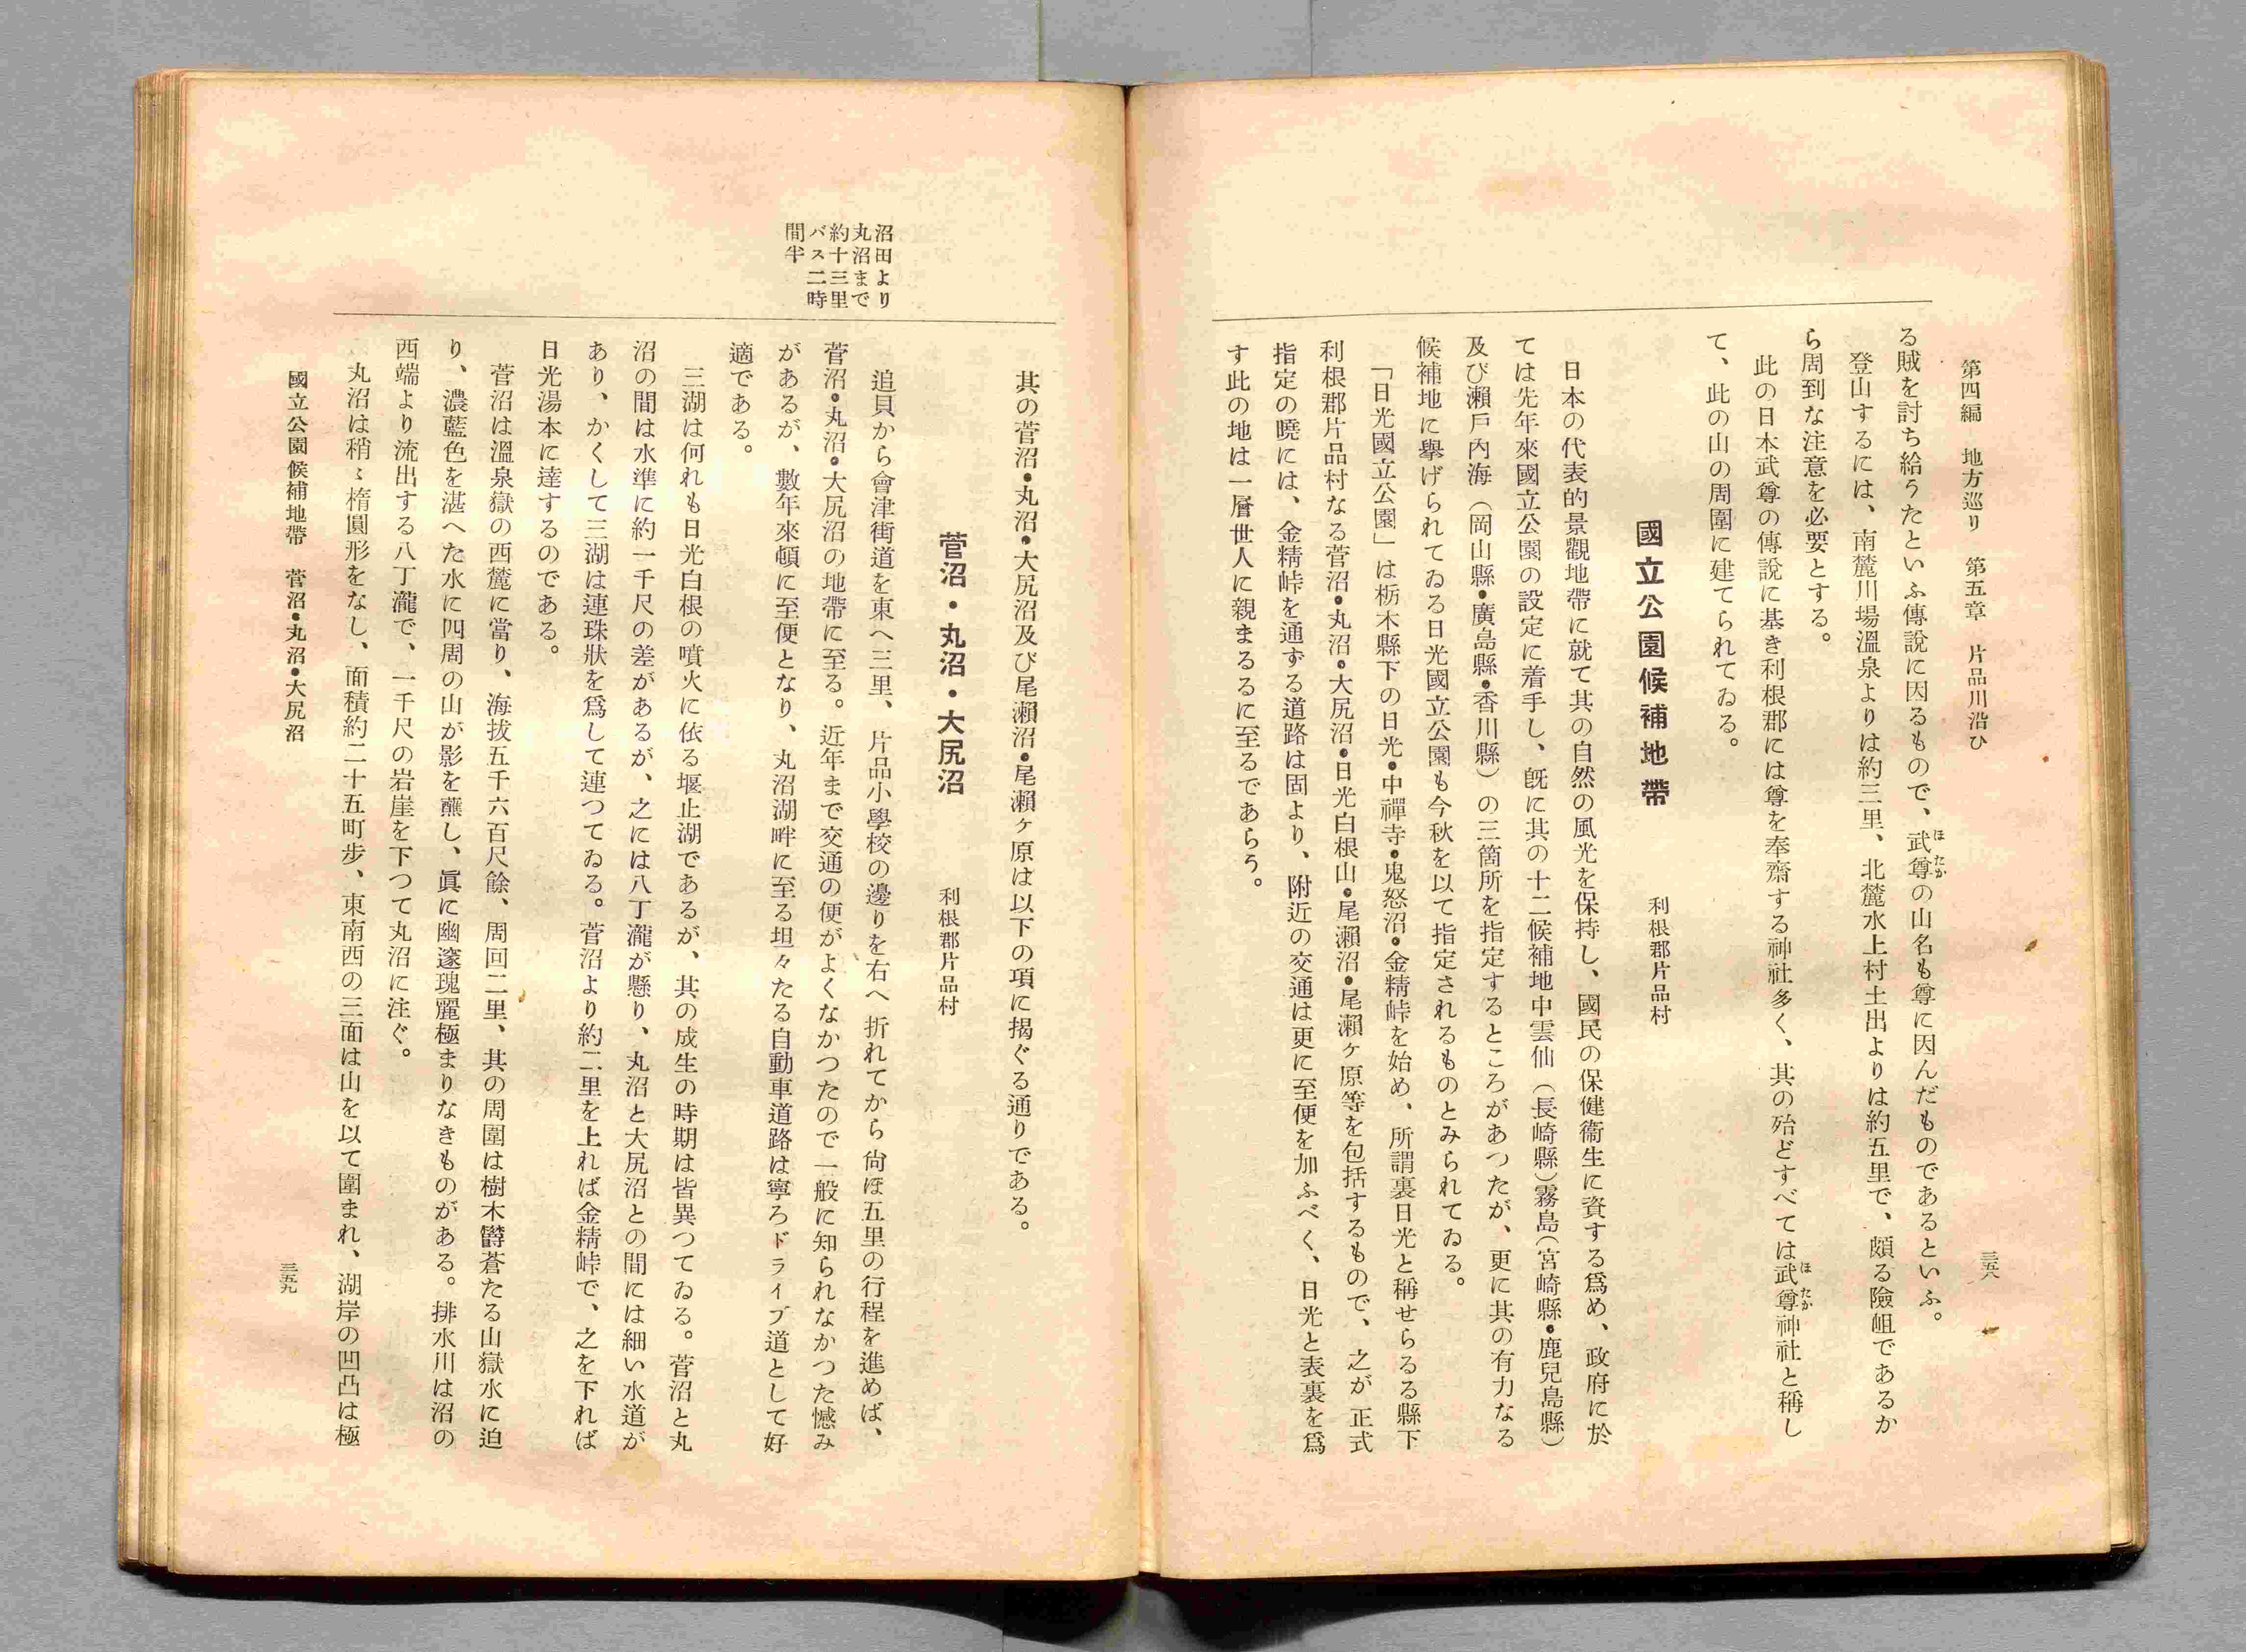 第四編　地方巡り　第五章　片品川沿ひ
三五八
る賊を討ち給うたといふ傳說に因るもので、武尊の山名も尊に因んだものであるといふ。
ほたか
登山するには、南麓川場溫泉よりは約三里、北麓水上村土出よりは約五里で、頗る險岨であるか
ら周到な注意を必要とする。
此の日本武尊の傳說に基き利根郡には尊を奉齋する神社多く、其の殆どすべては武尊神社と稱し
ほたか
て、此の山の周圍に建てられてゐる。
國立公園候補地帶
利根郡片品村
日本の代表的景觀地帶に就て其の自然の風光を保持し、國民の保健衞生に資する爲め、政府に於
ては先年來國立公園の設定に着手し、旣に其の十二候補地中雲仙（長崎縣）霧島（宮崎縣・鹿兒島縣）
及び瀨戶內海（岡山縣・廣島縣・香川縣）の三箇所を指定するところがあつたが、更に其の有力なる
候補地に擧げられてゐる日光國立公園も今秋を以て指定されるものとみられてゐる。
「日光國立公園」は栃木縣下の日光・中禪寺・鬼怒沼・金精峠を始め、所謂裏日光と稱せらるる縣下
利根郡片品村なる菅沼・丸沼・大尻沼・日光白根山・尾瀨沼・尾瀨ヶ原等を包括するもので、之が正式
指定の曉には、金精峠を通ずる道路は固より、附近の交通は更に至便を加ふべく、日光と表裏を爲
す此の地は一層世人に親まるるに至るであらう。
其の菅沼・丸沼・大尻沼及び尾瀨沼・尾瀨ヶ原は以下の項に揭ぐる通りである。
菅沼・丸沼・大尻沼
利根郡片品村
沼田より
丸沼まで
約十三里
バス二時
間半
追貝から會津街道を東へ三里、片品小學校の邊りを右へ折れてから尙ほ五里の行程を進めば、
菅沼・丸沼・大尻沼の地帶に至る。近年まで交通の便がよくなかつたので一般に知られなかつた憾み
があるが、數年來頓に至便となり、丸沼湖畔に至る坦々たる自動車道路は寧ろドライブ道として好
適である。
三湖は何れも日光白根の噴火に依る堰止湖であるが、其の成生の時期は皆異つてゐる。菅沼と丸
沼の間は水準に約一千尺の差があるが、之には八丁瀧が懸り、丸沼と大尻沼との間には細い水道が
あり、かくして三湖は連珠狀を爲して連つてゐる。菅沼より約二里を上れば金精峠で、之を下れば
日光湯本に達するのである。
菅沼は溫泉嶽の西麓に當り、海拔五千六百尺餘、周回二里、其の周圍は樹木欝蒼たる山嶽水に迫
り、濃藍色を湛へた水に四周の山が影を蘸し、眞に幽邃瑰麗極まりなきものがある。排水川は沼の
西端より流出する八丁瀧で、一千尺の岩崖を下つて丸沼に注ぐ。
丸沼は稍〻楕圓形をなし、面積約二十五町步、東南西の三面は山を以て圍まれ、湖岸の凹凸は極
國立公園候補地帶　菅沼・丸沼・大尻沼
三五九